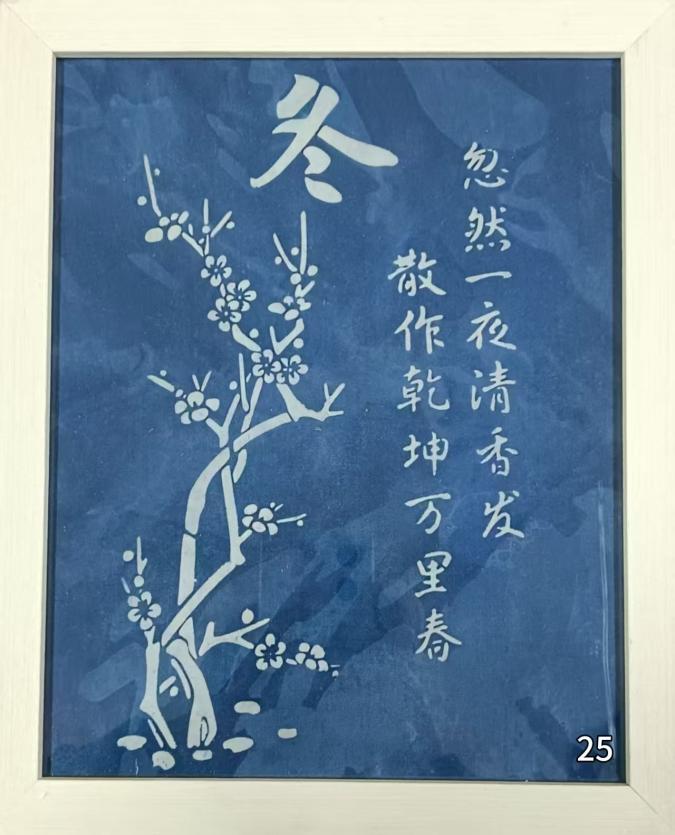 冬
忽然一夜清香发
散作乾坤万里春
25